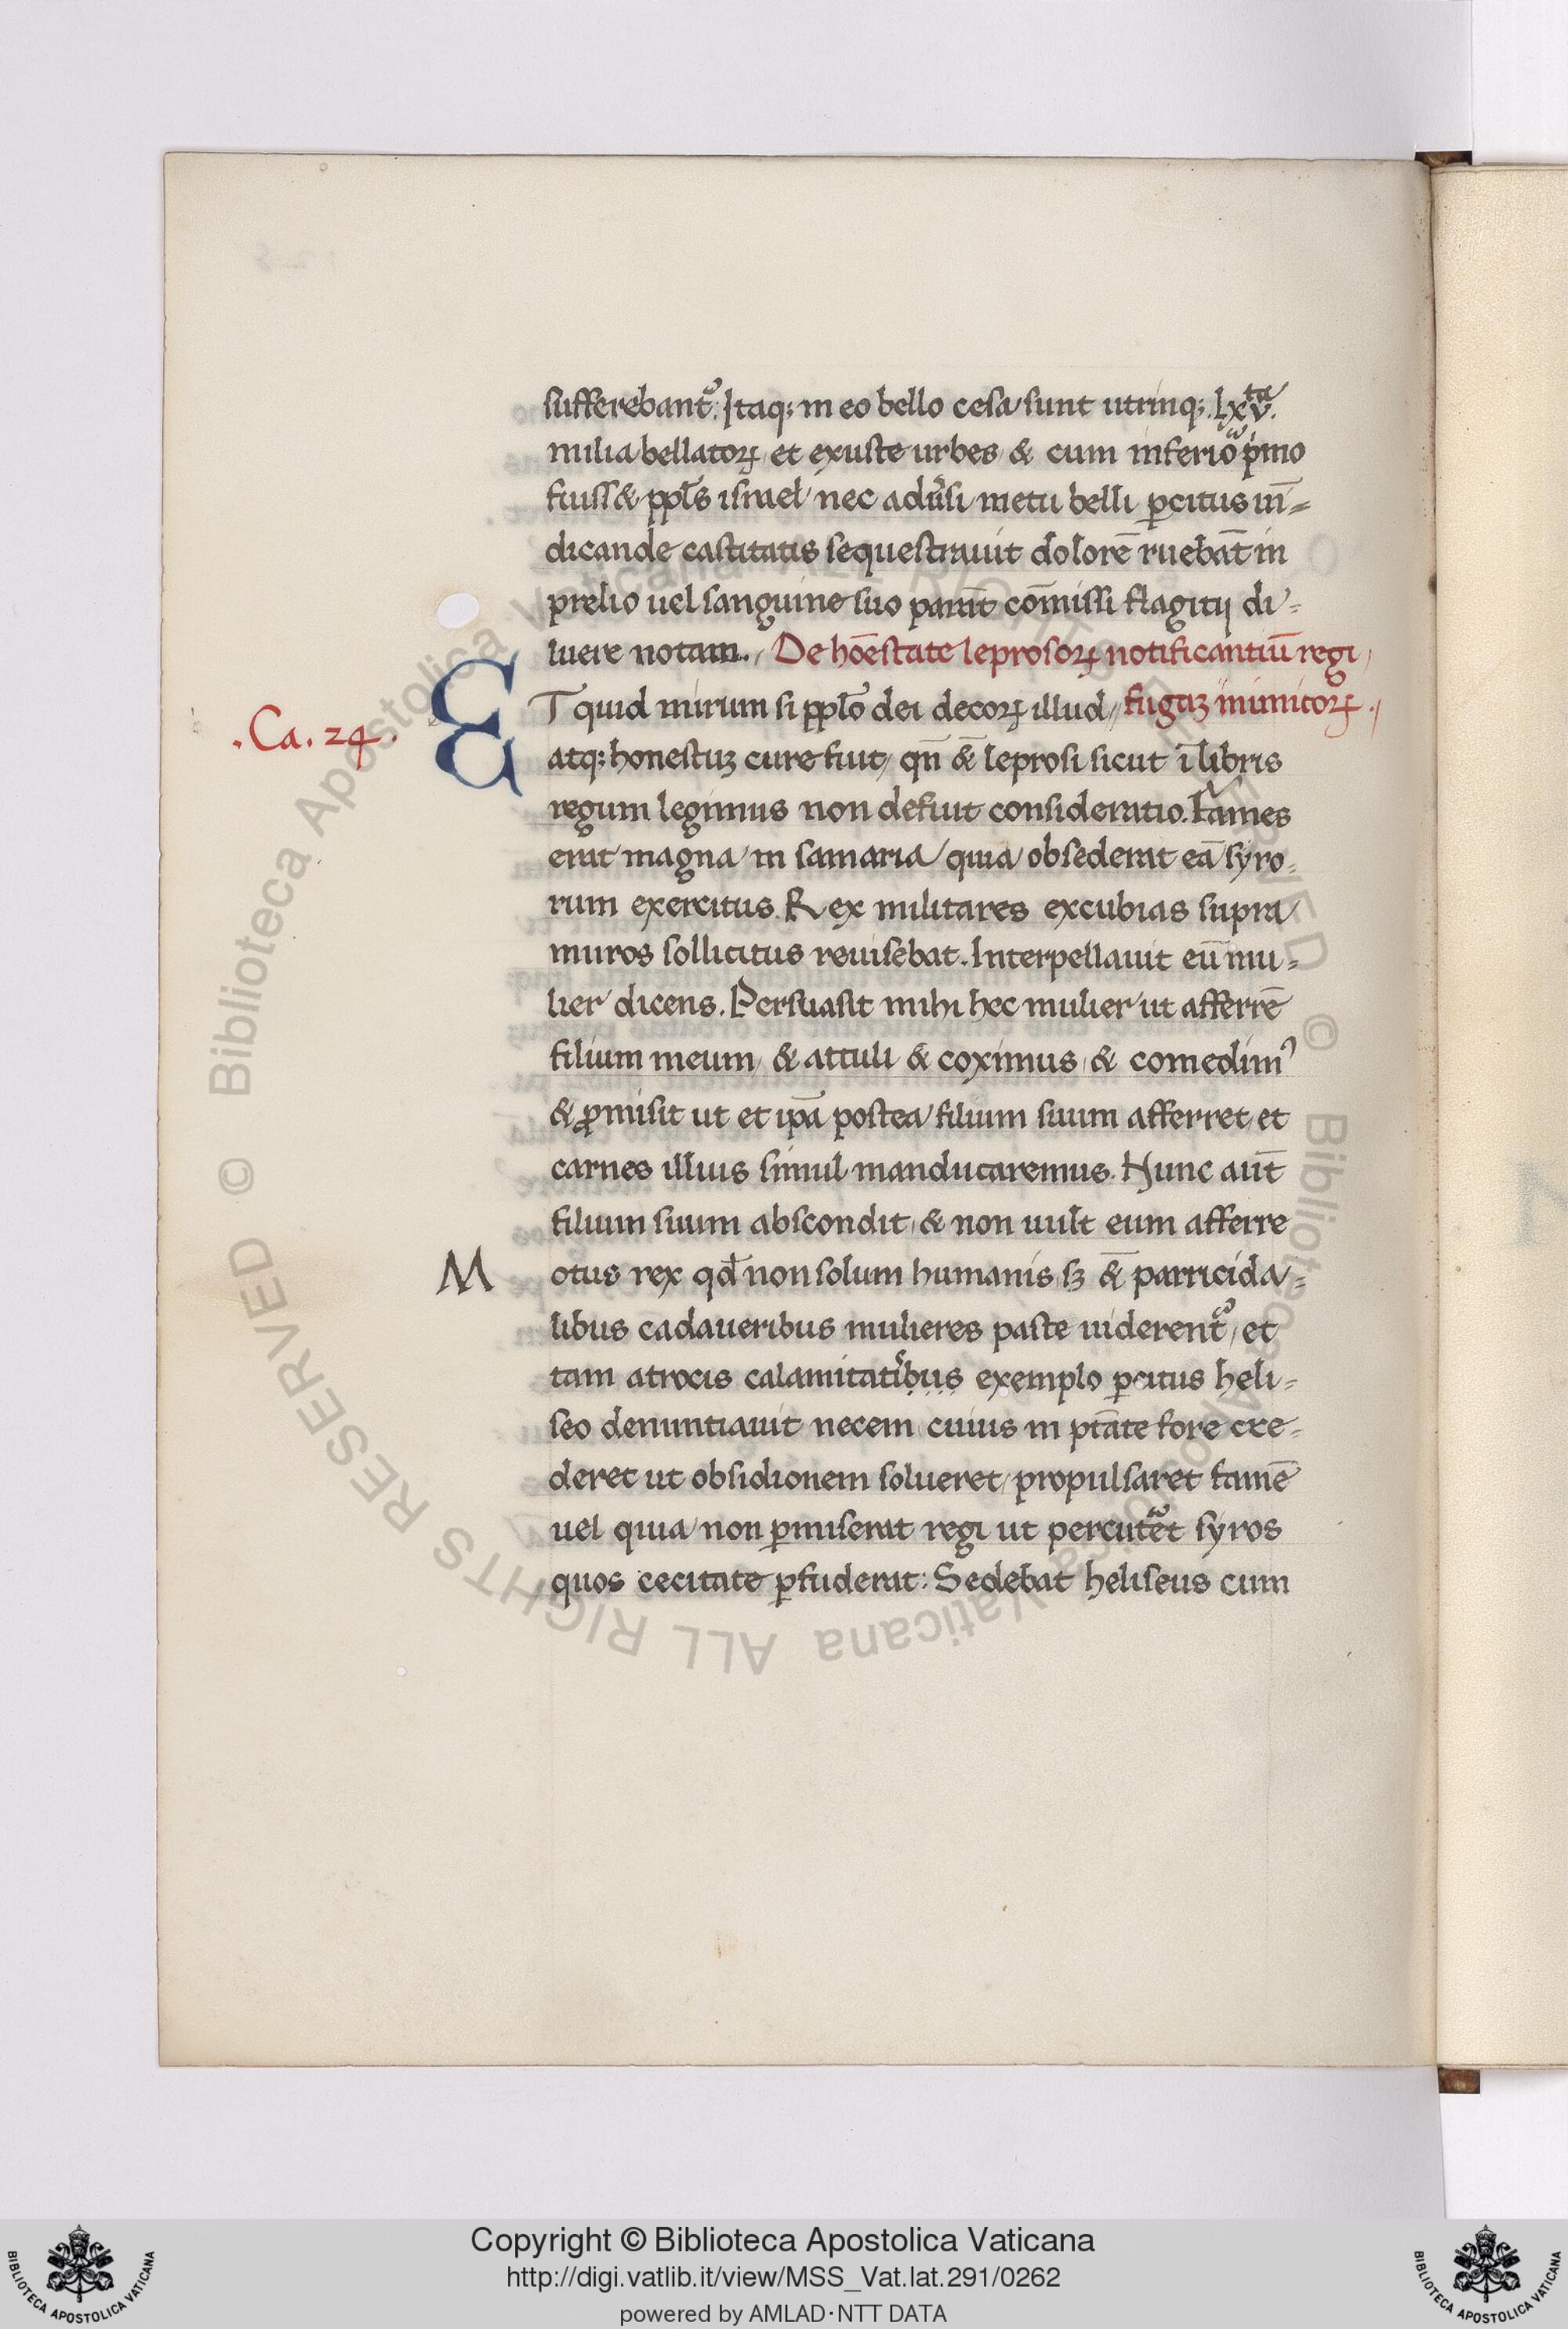 sufferebant᷑. Itaq; in eo bello cesa sunt utrinq; .lxv.ta
milia bellatoꝝ et exuste urbes & cum inferior p̍mo
fuiss& ppl̄s israel nec aduersi metu belli ꝑcitus uin̄-
dicande castitatis sequestrauit dolorē ruebat̄ in
prelio uel sanguine suo parat̄ com̄issi flagitij di-
luere notam. De hōestate leprosoꝝ notificantiū regi
.Ca. 24.
ET quid mirum si pplo̅ dei decoꝝ illud fugaꝫ inimicoꝝ.
atq; honestuꝫ cure fuit, qn̄ &̄ leprosi sicut ī libris
regum legimus non defuit consideratio. Fames
erat magna in samaria quia obsederat eā syro-
rum exercitus. Rex militares excubias supra
muros sollicitus reuisebat. Interpellauit eū mu-
lier dicens. Persuasit mihi hec mulier ut afferrē
filium meum, & attuli & coximus, & comedimꝰ
& ꝓmisit ut et ip̄a postea filium suum afferret et
carnes illius simul manducaremus. Hunc aut̄
filium suum abscondit, & non uult eum afferre
Motus rex qd̄ non solum humanis sꝫ &̄ parricida-
libus cadaueribus mulieres paste uiderent᷑, et
tam atrocis calamitatibus exemplo ꝑcitus heli-
seo denuntiauit necem cuius in pt̄āte fore cre-
deret ut obsidionem solueret, propulsaret famē
uel quia non ꝑmiserat regi ut percuteret syros
quos cecitate ꝑfuderat: Sedebat heliseus cum
© Biblioteca Apostolica Vaticana ALL RIGHTS RESERVED © Biblioteca Apostolica Vaticana ALL RIGHTS RESERVED
Copyright © Biblioteca Apostolica Vaticana
http://digi.vatlib.it/view/MSS_Vat.lat.291/0262
powered by AMLAD·NTT DATA
BIBLIOTECA APOSTOLICA VATICANA
BIBLIOTECA APOSTOLICA VATICANA